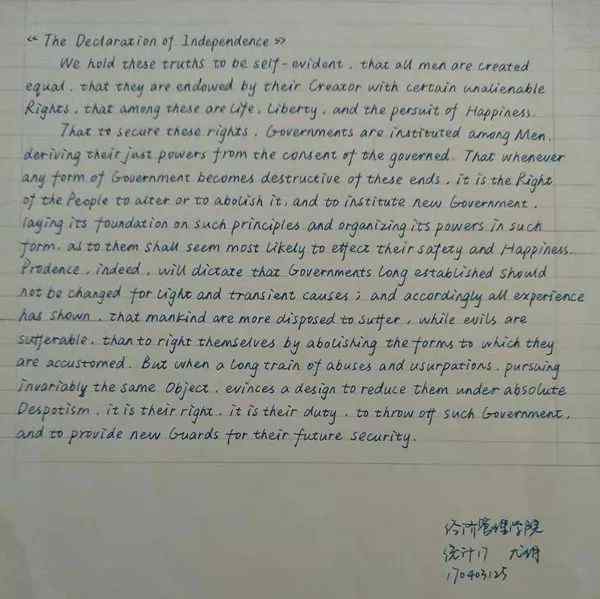 《 The Declaration of Independence 》
We hold these truths to be self-evident, that all men are created
equal, that they are endowed by their Creator with certain unalienable
Rights, that among these are life, Liberty, and the persuit of Happiness.
That to secure these rights, Governments are instituted among Men,
deriving their just powers from the consent of the governed. That whenever
any form of Government becomes destructive of these ends, it is the Right
of the People to alter or to abolish it, and to institute new Government,
laying its foundation on such principles and organizing its powers in such
form, as to them shall seem most likely to effect their safety and Happiness.
Prodence, indeed, will dictate that Governments long established should
not be changed for light and transient causes; and accordingly all experience
has shown, that mankind are more disposed to suffer, while evils are
sufferable, than to right themselves by abolishing the forms to which they
are accustomed. But when a long train of abuses and usurpations, pursuing
invariably the same Object, evinces a design to reduce them under absolute
Despotism, it is their right, it is their duty, to throw off such Government,
and to provide new Guards for their future security.
经济管理学院
统计17 尤
170403125